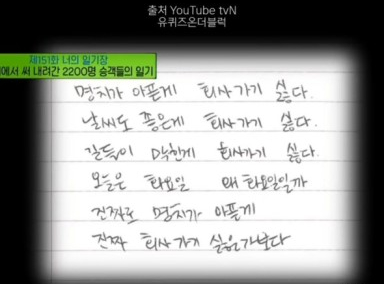 출처 YouTube tvN
유퀴즈온더블럭
제151화 너의 일기장
에서 써 내려간 2200명 승객들의 일기
명치가 아픈게 회사가기 싫다.
날씨도 좋은게 회사가기 싫다.
길들이 막힌게 회사가기 싫다.
오늘은 화요일 왜 화요일일까
진짜로 명치가 아픈게
진짜 회사가기 싫은가보다